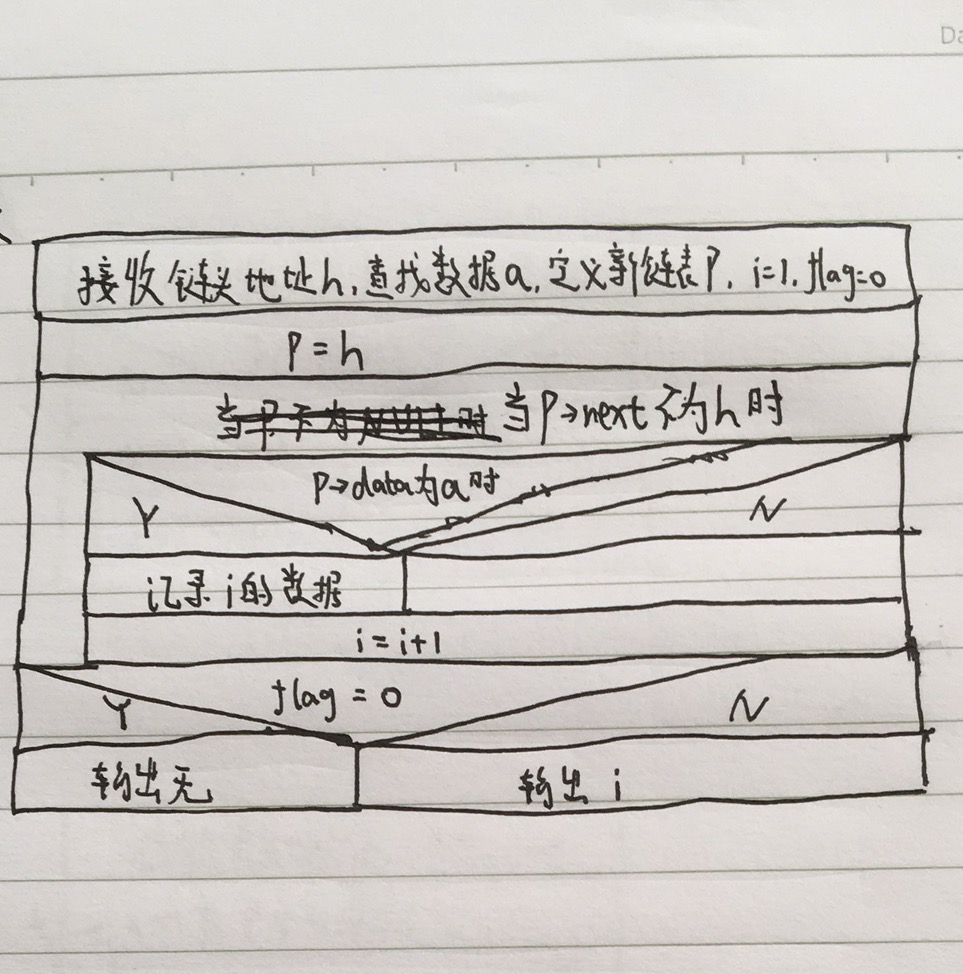 Da
接收链头地址h,查找数据a,定义新链表P, i=1, flag=0
P=h
当P不为NULL时 当P→next不为h时
P→data为a时
Y N
记录i的数据
i=i+1
flag=0
Y N
输出无 输出i